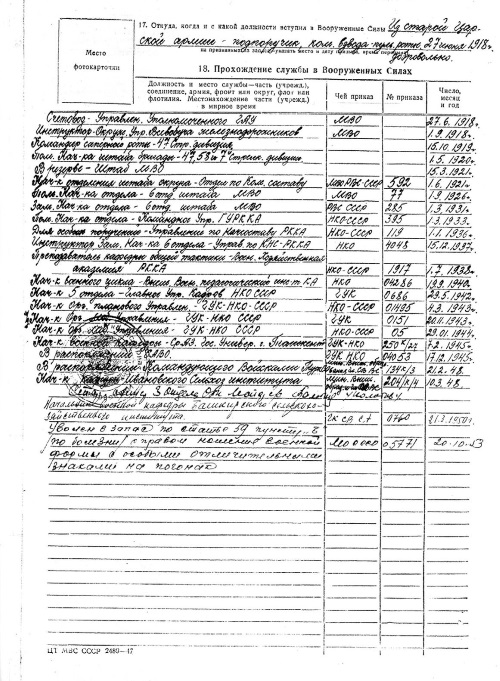 17. Откуда, когда и с какой должности вступил в Вооруженные Силы Из старой Цар-
Место
фотокарточки
ской армии - подпоручик, ком. взвода пул. роты, 27 июня 1918 г.
добровольно.
18. Прохождение службы в Вооруженных Силах
Должность и место службы—часть (учрежд.), соединение, армия, фронт или округ, флот или флотилия. Местонахождение части (учрежд.) в мирное время
Чей приказ
№ приказа
Число, месяц и год
Счетовод - Управлен. Уполномоченного ГАУ МВО 27.6.1918г.
Инструктор - Окруж. Упр. Всевобуча железнодорожников МВО 1.9.1918г.
Командир саперной роты - 47 Стр. дивизия 15.10.1919г.
Пом. Нач-ка штаба бригады - 47, 58 и 7 Стрелк. дивизии 1.5.1920г.
В резерве - Штаб МВО 15.3.1921г.
Нач-к отделения штаба округа - Отдел по Ком. составу 592 1.6.1921г.
Пом. Нач-ка отдела - 6 отд штаба МВО МВО 77 1.3.1926г.
Зам. Нач-ка отдела - 6 отд. штаба МВО РВС СССР 285 1.3.1931г.
Пом. Нач-ка отдела - Командное Упр. ГУРККА НКО-СССР 395 1.3.1933г.
Для особых поручений - Управления по Начсоставу РККА НКО-СССР 119 1.1.1936г.
Инструктор Зам. Нач-ка 6 отдела - Управ. по КНС-РККА НКО 4048 15.12.1937г.
Преподаватель кафедры общей тактики Воен. Хозяйственная
академия РККА НКО-СССР 1917 1.7.1938г.
Нач-к военного цикла - Высш. Воен. педагогический ин-т КА НКО 04286 13.9.1940г.
Нач-к 5 отдела - Главное Упр. Кадров НКО СССР ГУК 0686 29.5.1942г.
Нач-к Орг. планового Управлен. - ГУК-НКО-СССР НКО-СССР 01495 4.3.1943г.
ГУК-НКО СССР ГУК 0151 20.11.1943г.
Управления - ГУК-НКО СССР НКО-СССР 05 29.01.1944г.
Нач-к Военной Кафедры - Ср. Аз. Гос. Универ. г. Ташкент ГУК-НКО 7.2.1945г.
В распоряжении ГУК НКО 04053 17.12.1945г.
В распоряжении - Командующего Войсками 134к/з 21.2.48.
Нач-к Кафедры Ивановского Сельхоз института 204/к/4 10.3.48.
Начальник военной кафедры Башкирского сельхоз-
хозяйственного института. 0760 21.3.1950г.
Уволен в запас по статье 59 пункт "Б"
(по болезни) с правом ношения военной МО СССР 05771 20.10.53
формы с особыми отличительными
знаками на погонах
ЦТ МВС СССР 2480—47